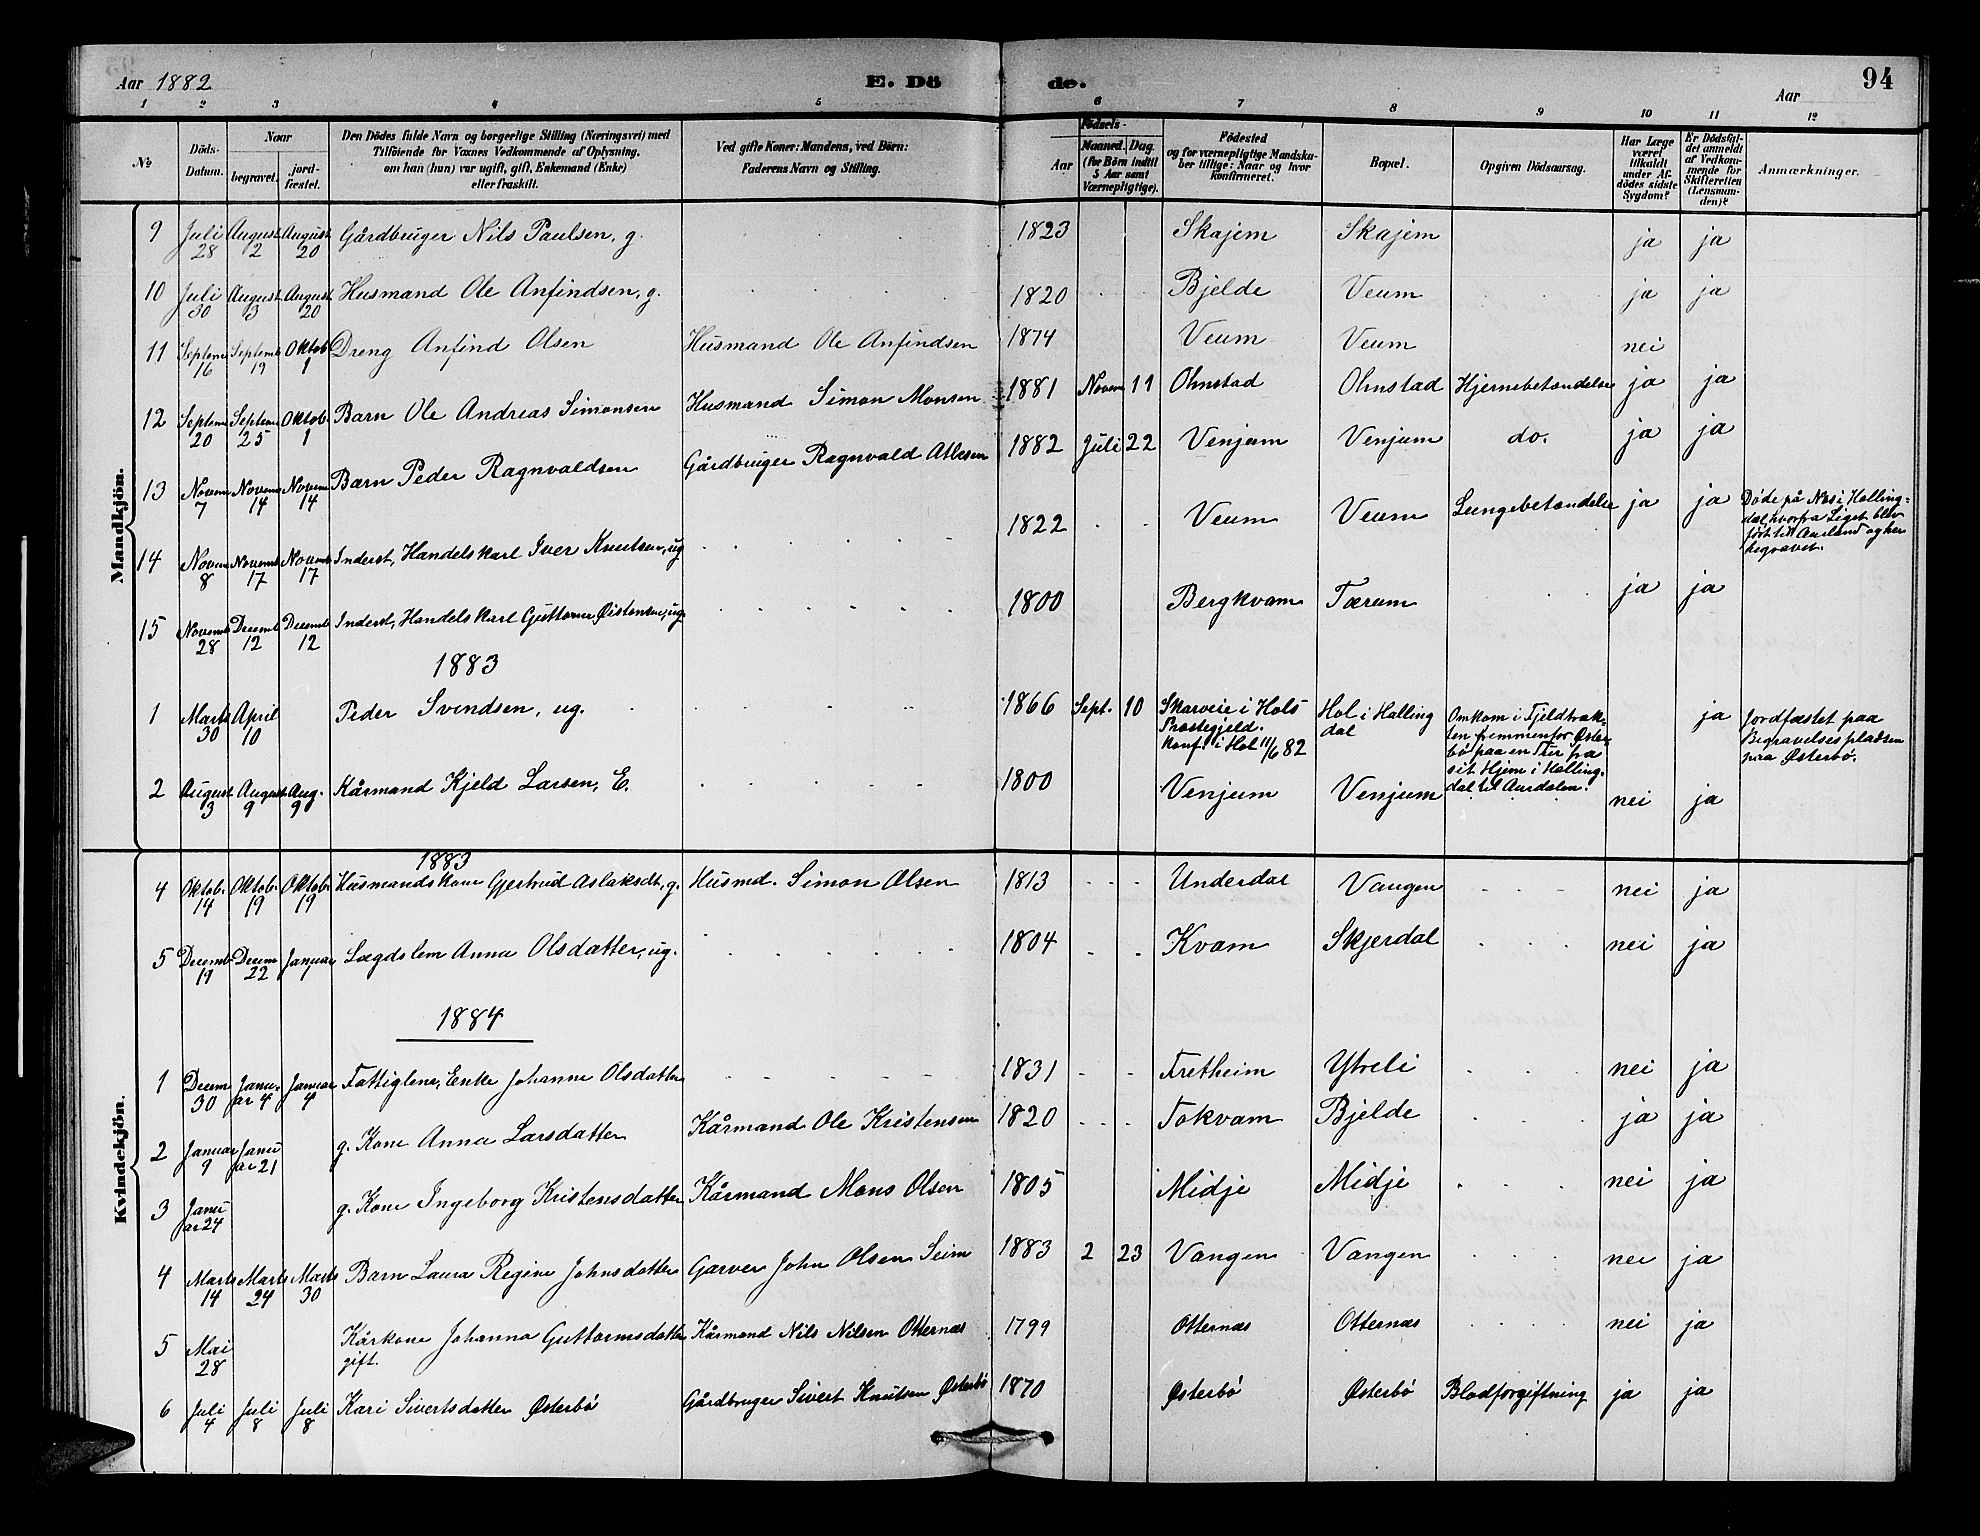 Aar 1882
E. Dö
de.
Aar
94
1 2 3 4 5 6 7 8 9 10 11 12
No
Döds-Datum.
Naar
begravet.
jordfæstet.
Den Dödes fulde Navn og borgerlige Stilling (Næringsvei) med
Tilföiende for Voxnes Vedkommende af Oplysning,
om han (hun) var ugift, gift, Enkemand (Enke)
eller fraskilt.
Ved gifte Koner: Mandens, ved Börn:
Faderens Navn og Stilling.
Födsels-
Aar
Maaned. Dag.
(for Börn indtil
5 Aar samt
Værnepligtige).
Födested
og for værnepligtige Mandskaber tillige: Naar og hvor
konfirmeret.
Bopæl.
Opgiven Dödsaarsag.
Har Læge
været
tilkaldt
under Afdödes sidste
Sygdom?
Er Dödsfaldet anmeldt
af Vedkommende for
Skifteretten
(Lensmanden)?
Anmærkninger.
Mandkjön.
9 Juli 28 August 12 August 20 Gårdbruger Nils Paulsen, g. 1823 Skajem Skajem ja ja
10 Juli 30 August 13 August 20 Husmand Ole Anfindsen, g. 1820 Bjelde Veum ja ja
11 Septem 16 Septemb 19 Oktob 1 Dreng Anfind Olsen Husmand Ole Anfindsen 1874 Veum Veum nei
12 Septem 20 Septem 25 Oktob. 1 Barn Ole Andreas Simonsen Husmand Simon Monsen 1881 Novem 11 Ohnstad Ohnstad Hjernebetændelse ja ja
13 Novem 7 Novem 14 Novem 14 Barn Peder Ragnvaldsen Gårdbruger Ragnvald Atlesen 1882 Juli 22 Venjum Venjum do. ja ja
14 Novem 8 Novemb 17 Novemb 17 Inderst, Handelskarl Iver Knutsen, ug 1822 Veum Veum Lungebetændelse ja ja Døde på Næs i Halling-
dal, hvorfra Liget blev
ført til Aurland og her
begravet.
15 Novemb 28 Decemb 12 Decemb 12 Inderst, Handelskarl Guttorm Øistensen, ug 1800 Bergkvam Tærum ja ja
1883
1 Marts 30 April 10 Peder Svendsen, ug. 1866 Sept. 10 Skarveie i Hols
Præstegjeld.
Konf. i Hol 11/6 82
Hol i Halling
dal
Omkom i Fjeldtrak-
ten fremmenfor Øster-
bø paa en Tur fra
sit Hjem i Halling-
dal til Aurdalen.
ja Jordfæstet paa
Begravelsespladsen
paa Østerbø.
2 August 3 August 9 Aug. 9 Kårmand Kjeld Larsen, E. 1800 Venjum Venjum nei ja
Kvindekjön.
1883
4 Oktob. 14 Oktob. 19 Oktob. 19 Husmandskone Gjertrud Aslaksdt., g. Husmd. Simon Olsen 1813 Underdal Vangen nei ja
5 Decemb 19 Decem 22 Januar 4 Lægdslem Anna Olsdatter, ug. 1804 Kvam Skjerdal nei ja
1884
1 Decem 30 Janu-
ar 4 Januar 4 Fattiglem, Enke Johanne Olsdatter 1831 Fretheim Ytreli nei ja
2 Januar 9 Janu
ar 21 g. Kone Anna Larsdatter Kårmand Ole Kristensen 1820 Tokvam Bjelde ja ja
3 Janu
ar 24 g. Kone Ingeborg Kristensdatter Kårmand Mons Olsen 1805 Midje Midje nei ja
4 Marts 14 Marts 24 Marts 30 Barn Laura Regine Johnsdatter Garver John Olsen Seim 1883 2 23 Vangen Vangen nei ja
5 Mai 28 Kårkone Johanna Guttormsdatter
gift. Kårmand Nils Nilsen Otternæs 1799 Otternæs Otternæs nei ja
6 Juli 4 Juli 8 Juli 8 Kari Sivertsdatter Østerbø Gårdbruger Sivert Knutsen Østerbø 1870 Østerbø Østerbø Blodforgiftning ja ja